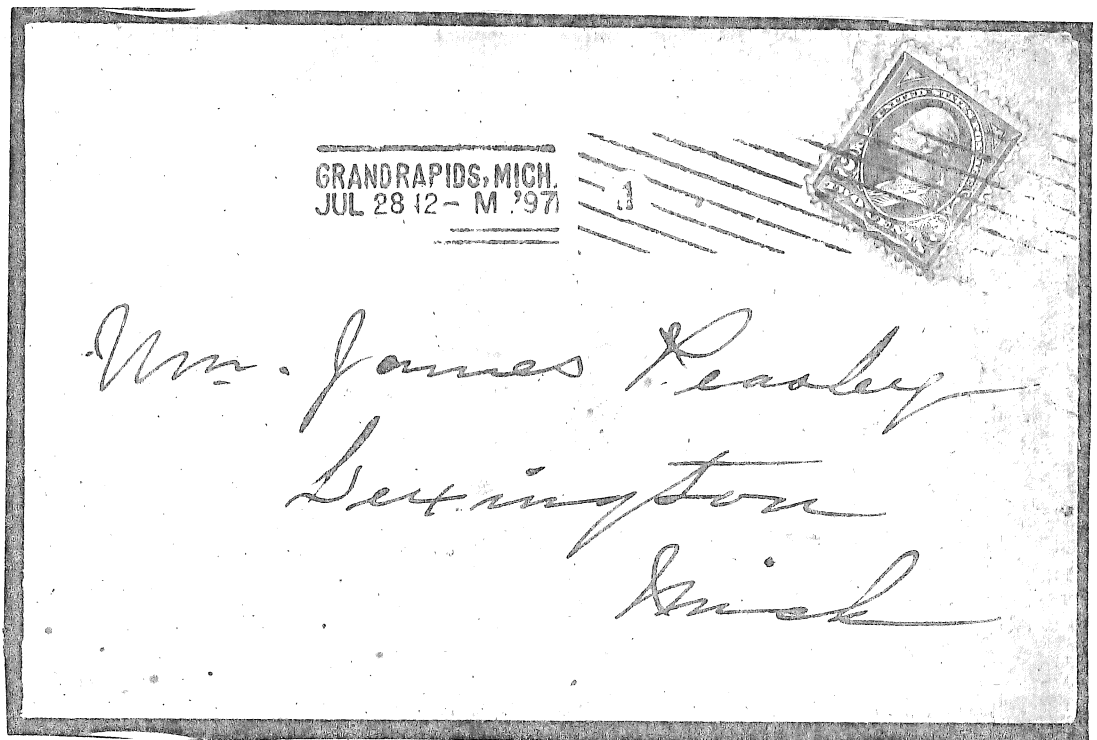 GRAND RAPIDS, MICH.
JUL 28 12 - M '97
1
Wm. James Peasley
Lexington
Mich